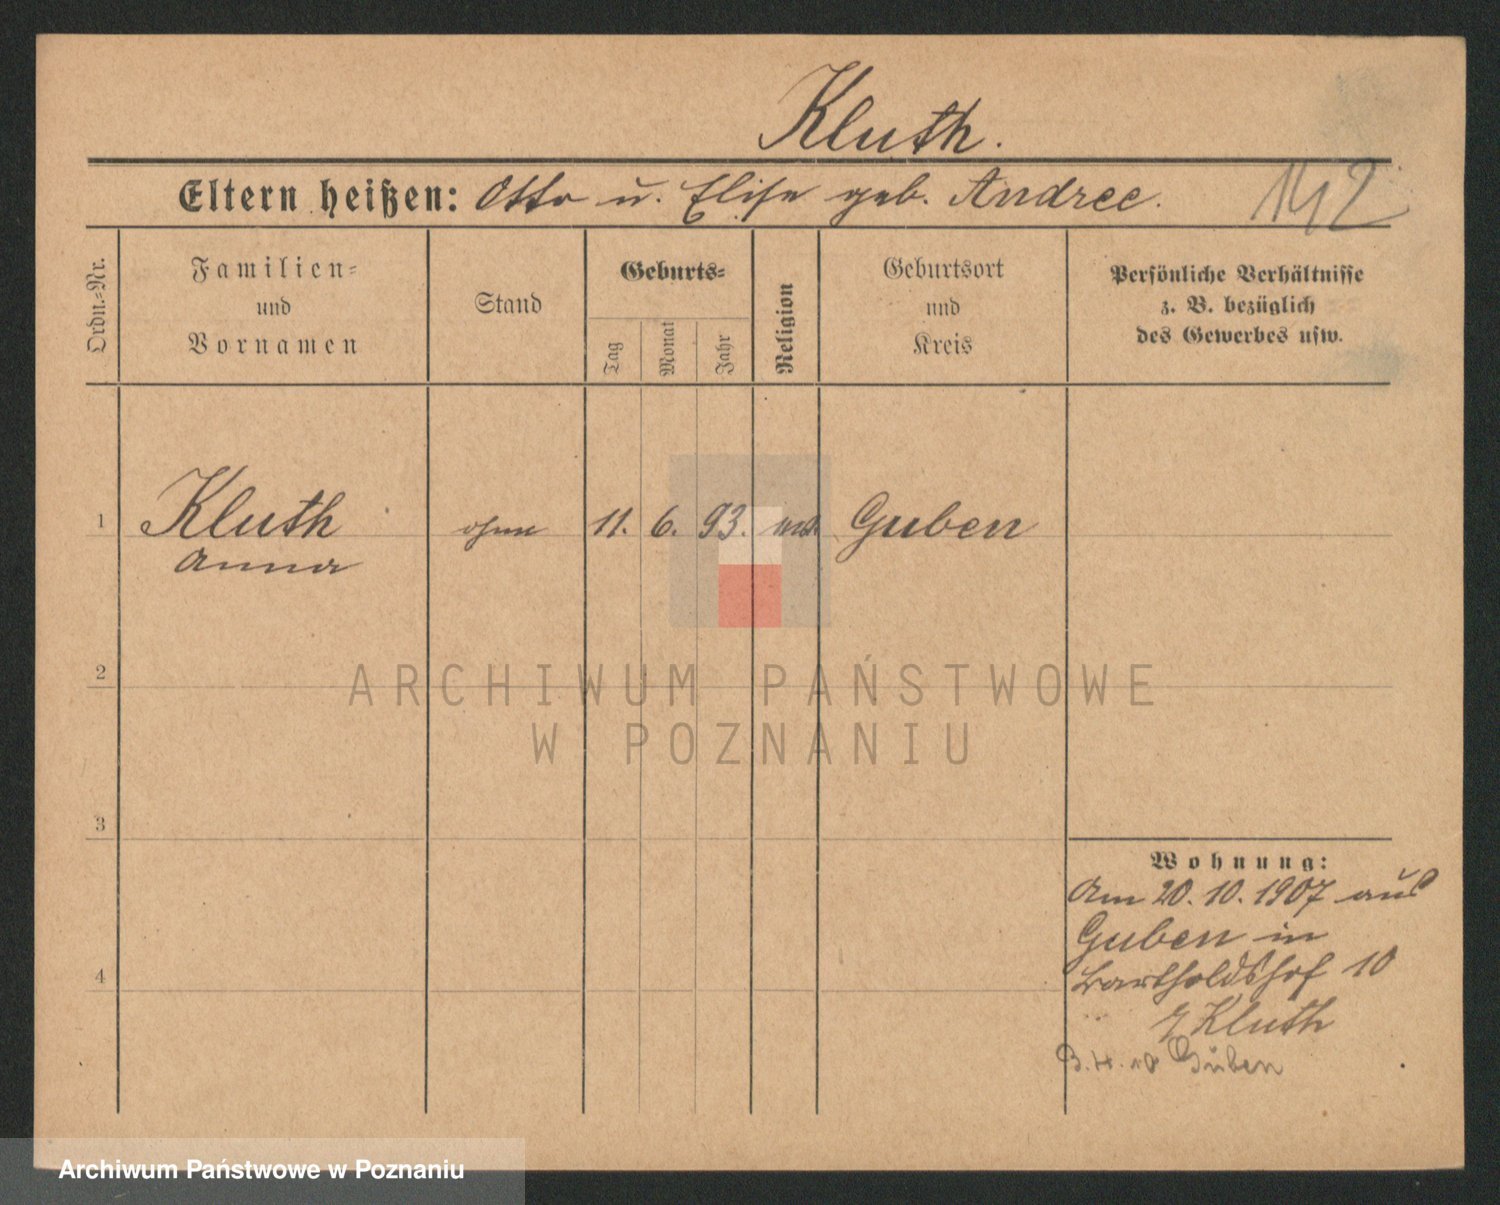 Kluth.
Eltern heißen: Otto u. Elise geb. Andree.
142
Ordn.-Nr.
Familien-
und
Vornamen
Stand
Geburts-
Tag
Monat
Jahr
Religion
Geburtsort
und
Kreis
Persönliche Verhältnisse
z. B. bezüglich
des Gewerbes usw.
1 Kluth ohne 11. 6. 93. Guben
Anna
2
ARCHIWUM PAŃSTWOWE
W POZNANIU
3
Wohnung:
Am 20. 10. 1907 aus
Guben in
Bartholdshof 10
Kluth
4
Guben
Archiwum Państwowe w Poznaniu